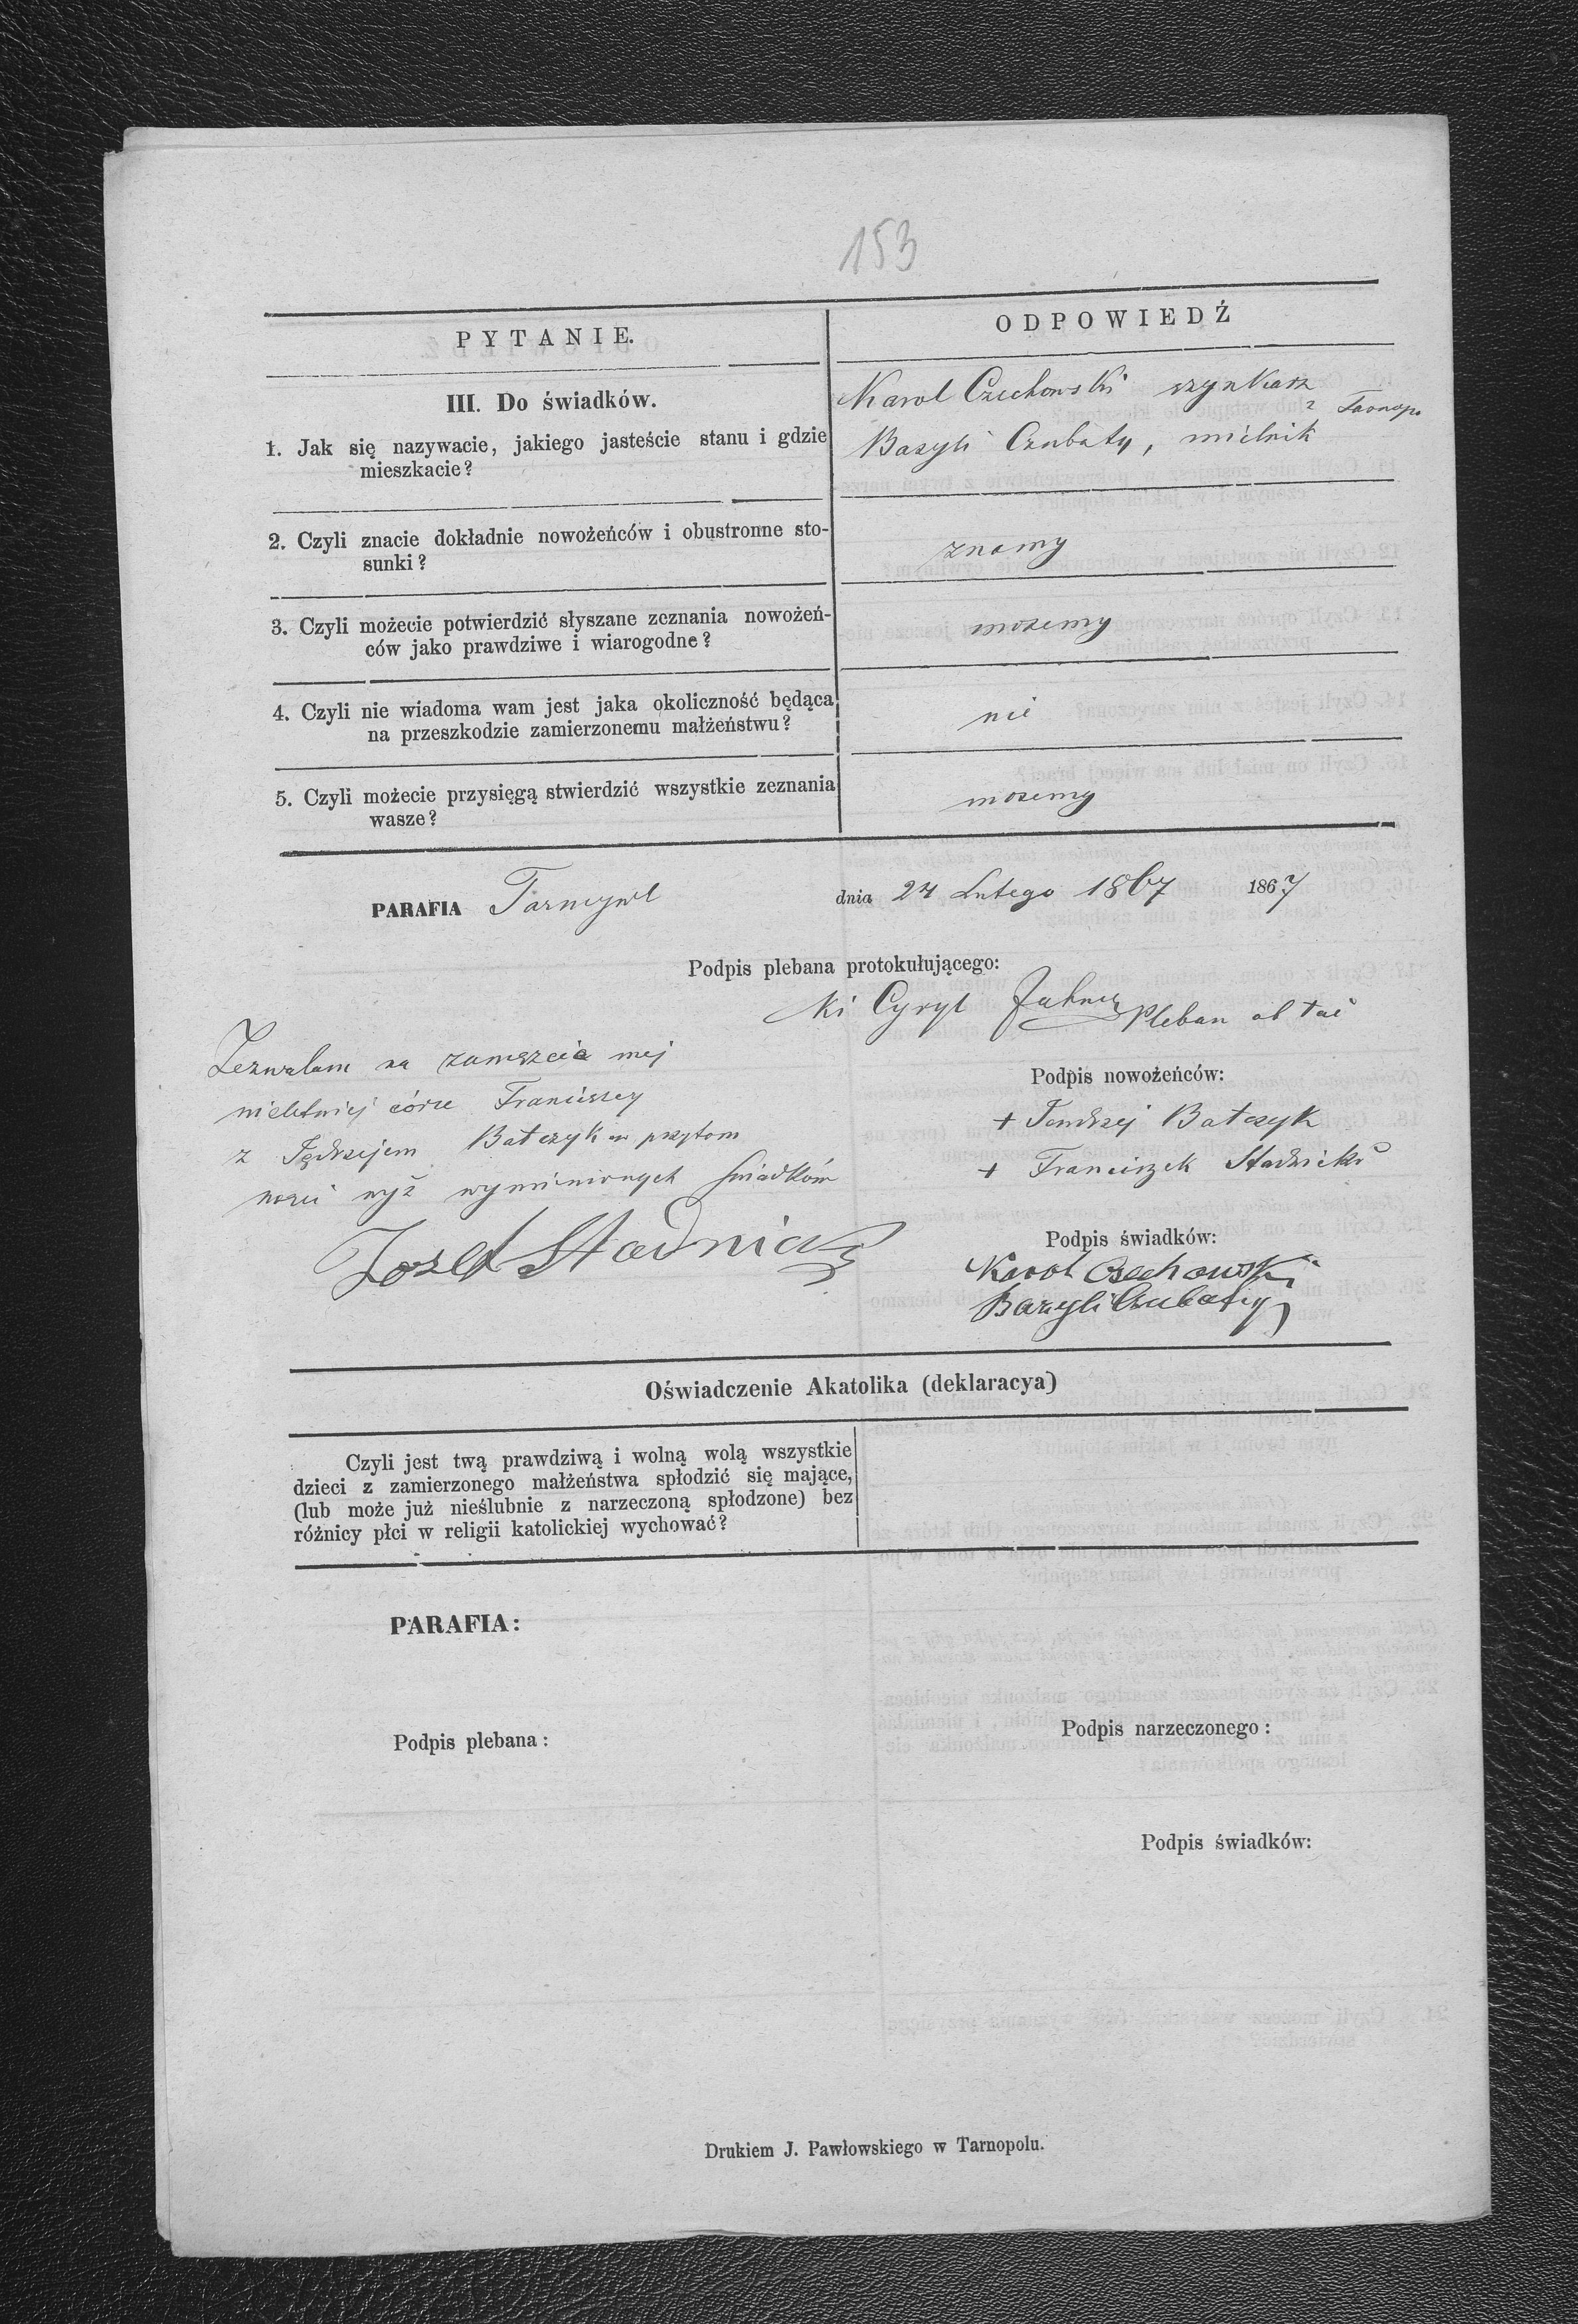 153
PYTANIE.
ODPOWIEDŹ
III. Do świadków.
1. Jak się nazywacie, jakiego jasteście stanu i gdzie
mieszkacie?
Karol Czechowski szynkarz
z Tarnop.
Bazyli Czubaty, mielnik
2. Czyli znacie dokładnie nowożeńców i obustronne sto-
sunki?
znamy
3. Czyli możecie potwierdzić słyszane zeznania nowożeń-
ców jako prawdziwe i wiarogodne?
mozemy
4. Czyli nie wiadoma wam jest jaka okoliczność będąca
na przeszkodzie zamierzonemu małżeństwu?
nie
5. Czyli możecie przysięgą stwierdzić wszystkie zeznania
wasze?
mozemy
PARAFIA
dnia 24 Lutego 1867 1867
Podpis plebana protokułującego:
Cyryl Pleban
Zezwalam na zamęzcie mej
nieletniej córce Franciszcy
z Jędrzejem Batczykem przytom
nosci wyż wymienionych świadków
Jozef Stadnicki
Podpis nowożeńców:
+ Jendrzej Batczyk
+ Franciszek Stadnicki
Podpis świadków:
Karol Czechowski
Bazyli Czubaty
Oświadczenie Akatolika (deklaracya)
Czyli jest twą prawdziwą i wolną wolą wszystkie
dzieci z zamierzonego małżeństwa spłodzić się mające,
(lub może już nieślubnie z narzeczoną spłodzone) bez
różnicy płci w religii katolickiej wychować?
PARAFIA:
Podpis plebana:
Podpis narzeczonego:
Podpis świadków:
Drukiem J. Pawłowskiego w Tarnopolu.